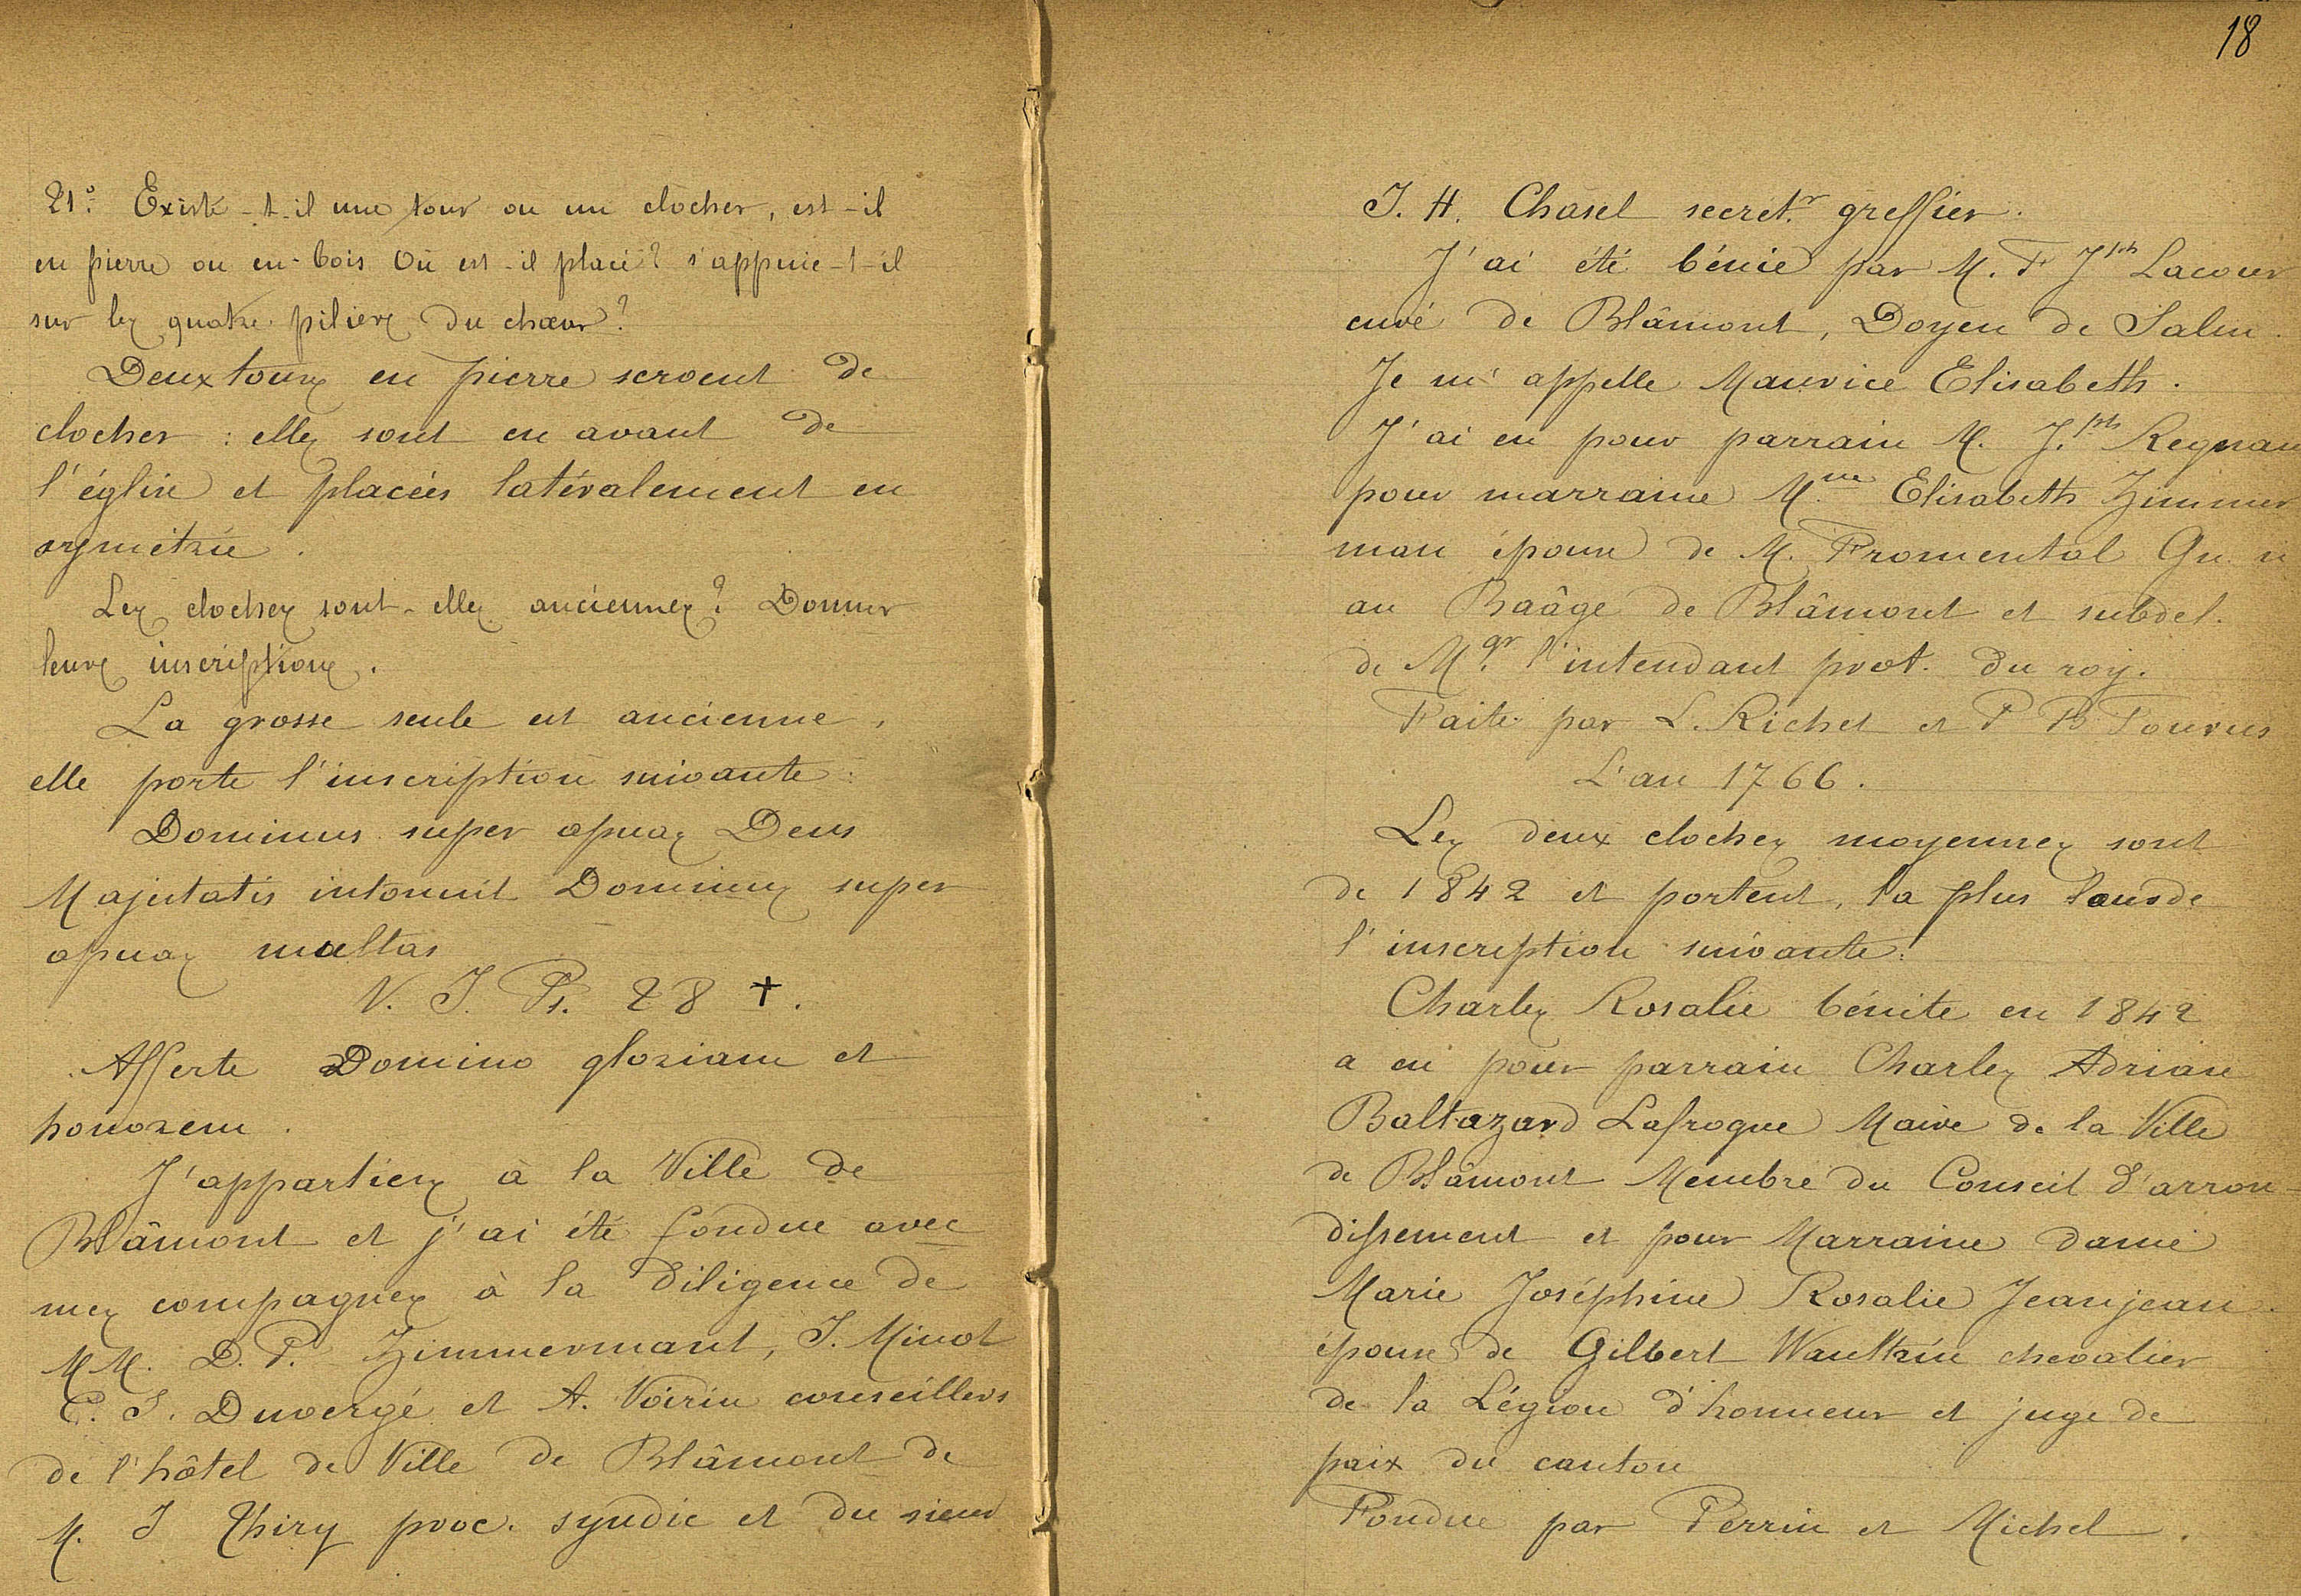 21° Existe-t-il une tour ou un clocher, est-il
en pierre ou en bois Où est-il placé? s'appuie-t-il
sur les quatre piliers du chœur?
Deux tours en pierre servent de
clocher : elles sont en avant de
l'église et placées latéralement en
symétrie.
Les cloches sont-elles anciennes? Donner
leurs inscriptions.
La grosse seule est ancienne,
elle porte l'inscription suivante :
Dominus super aquas Deus
Majestatis intonuit Dominus super
aquas multas
V. J. Ps. 28 +.
Afferte Domino gloriam et
honorem.
J'appartiens à la Ville de
Blâmont et j'ai été fondue avec
mes compagnes à la diligence de
MM. D. P. Zimmermant, J. Minot
C. J. Duvergé et A. Voirin conseillers
de l'hôtel de Ville de Blâmont de
M. J Thiry proc. syndic et du sieur
18
J. H. Chasel secret.r greffier.
J'ai été bénie par M. F Jph Lacour
curé de Blâmont, Doyen de Salm.
Je m'appelle Maurice Elisabeth.
J'ai eu pour parrain M. J.ph Regnau
pour marraine Mme Elisabeth Zimmer
man épouse de M. Fromental
au Baâge de Blâmont et subdel.
de Mgr. l'intendant prot. du roy.
Faite par L. Richet et P B Fourus
L'an 1766.
Les deux cloches moyennes sont
de 1842 et portent, la plus lourde
l'inscription suivante :
Charles Rosalie bénite en 1842
a eu pour parrain Charles Adrian
Baltazard Lafrogue Maire de la Ville
de Blâmont Membre du Conseil d'arron-
dissement et pour Marraine dame
Marie Joséphine Rosalie Jeanjean
épouse de Gilbert Waultrin chevalier
de la Légion d'honneur et juge de
paix du canton
Fondue par Perrin et Michel.